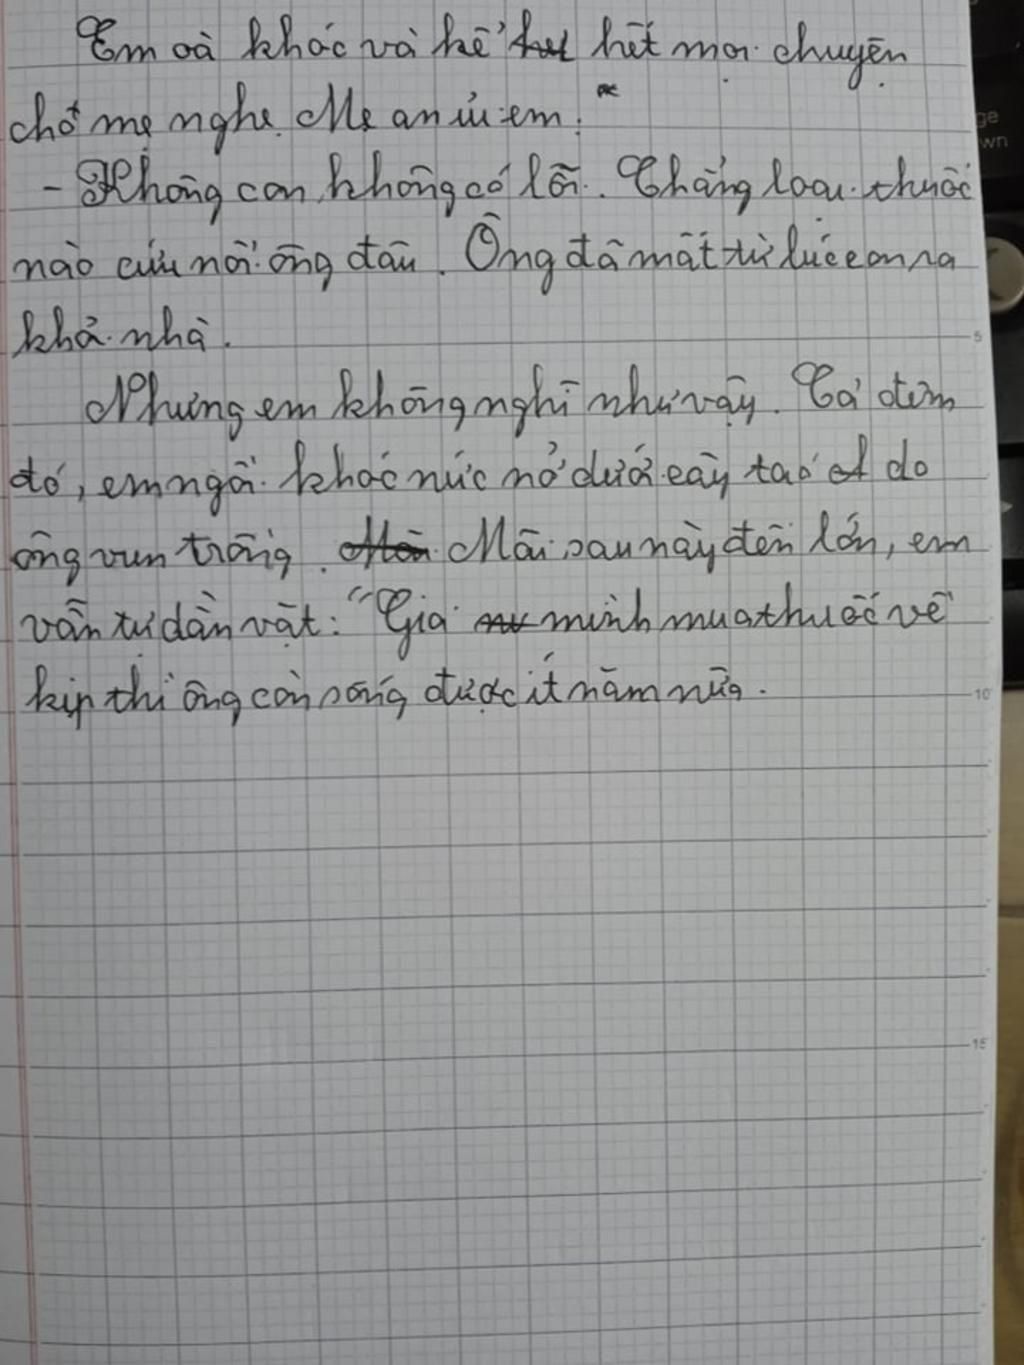 Em oà khóc và kể hết mọi chuyện
cho mẹ nghe. Mẹ an ủi em:
- Không con, không có lỗi. Chẳng loại thuốc
nào cứu nổi ông đâu. Ông đã mất từ lúc con ra
khỏi nhà.
Nhưng em không nghĩ như vậy. Cả đêm
đó, em ngồi khóc nức nở dưới cây táo do
ông vun trồng. Mãi sau này đến lớn, em
vẫn tự dằn vặt: "Giá mình mua thuốc về
kịp thì ông còn sống được ít năm nữa.